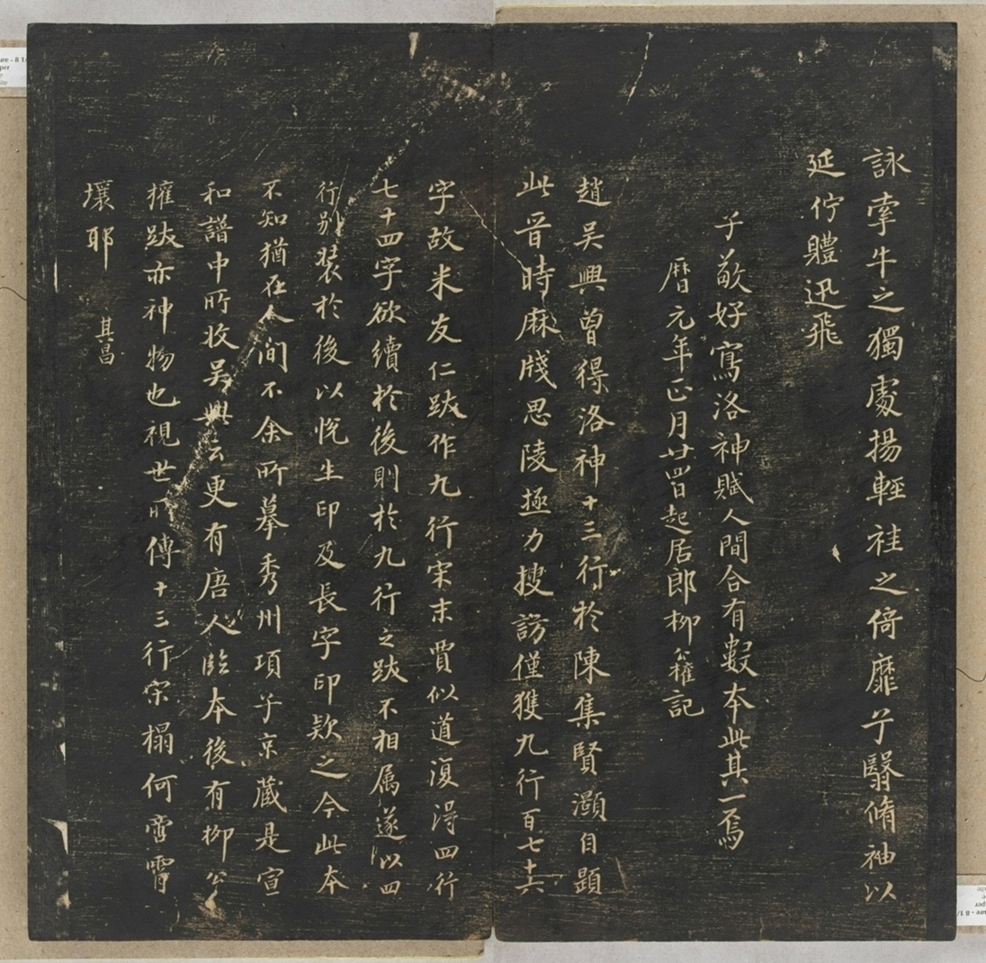 詠牽牛之獨處揚輕袿之倚靡兮翳脩袖以
延佇體迅飛
子敬好寫洛神賦人間合有數本此其一焉
曆元年正月廿四日起居郎柳公權記
趙吳興曾得洛神十三行於陳集賢灝自題
此晉時麻牋思陵極力搜訪僅獲九行百七十六
字故米友仁跋作九行宋末賈似道復得四行
七十四字欲續於後則於九行之跋不相属遂以四
行别裝於後以悦生印及長字印款之今此本
不知猶在人間不余所摹秀州項子京藏是宣
和譜中所收吳興云更有唐人臨本後有柳公
權跋亦神物也視世所傳十三行宋榻何啻霄
壤耶
其昌